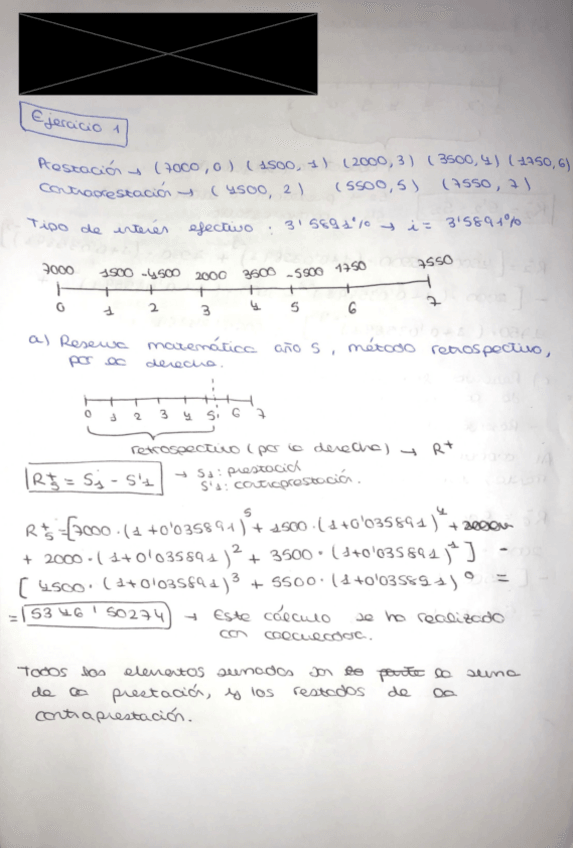 Ejercicio 1
Prestación → (7000, 0) (1500, 1) (2000, 3) (3500, 4) (1750, 6)
Contraprestación → (4500, 2) (5500, 5) (7550, 7)
Tipo de interés efectivo: 3'5891% → i = 3'5891%
7000 1500 -4500 2000 3500 -5500 1750 7550
0 1 2 3 4 5 6 7
a) Reserva matemática año 5, método retrospectivo,
por la derecha.
0 1 2 3 4 5 6 7
retrospectivo (por la derecha) → R+
R5+ = S1 - S'1 → S1: prestación
S'1: contraprestación.
R5+ = [7000·(1+0'035891)^5 + 1500·(1+0'035891)^4 +
+ 2000·(1+0'035891)^2 + 3500·(1+0'035891)^1] -
[4500·(1+0'035891)^3 + 5500·(1+0'035891)^0 =
= 5346'50274 → Este cálculo se ha realizado
con calculadora.
Todos los elementos sumados son la suma
de la prestación, y los restados de la
contraprestación.